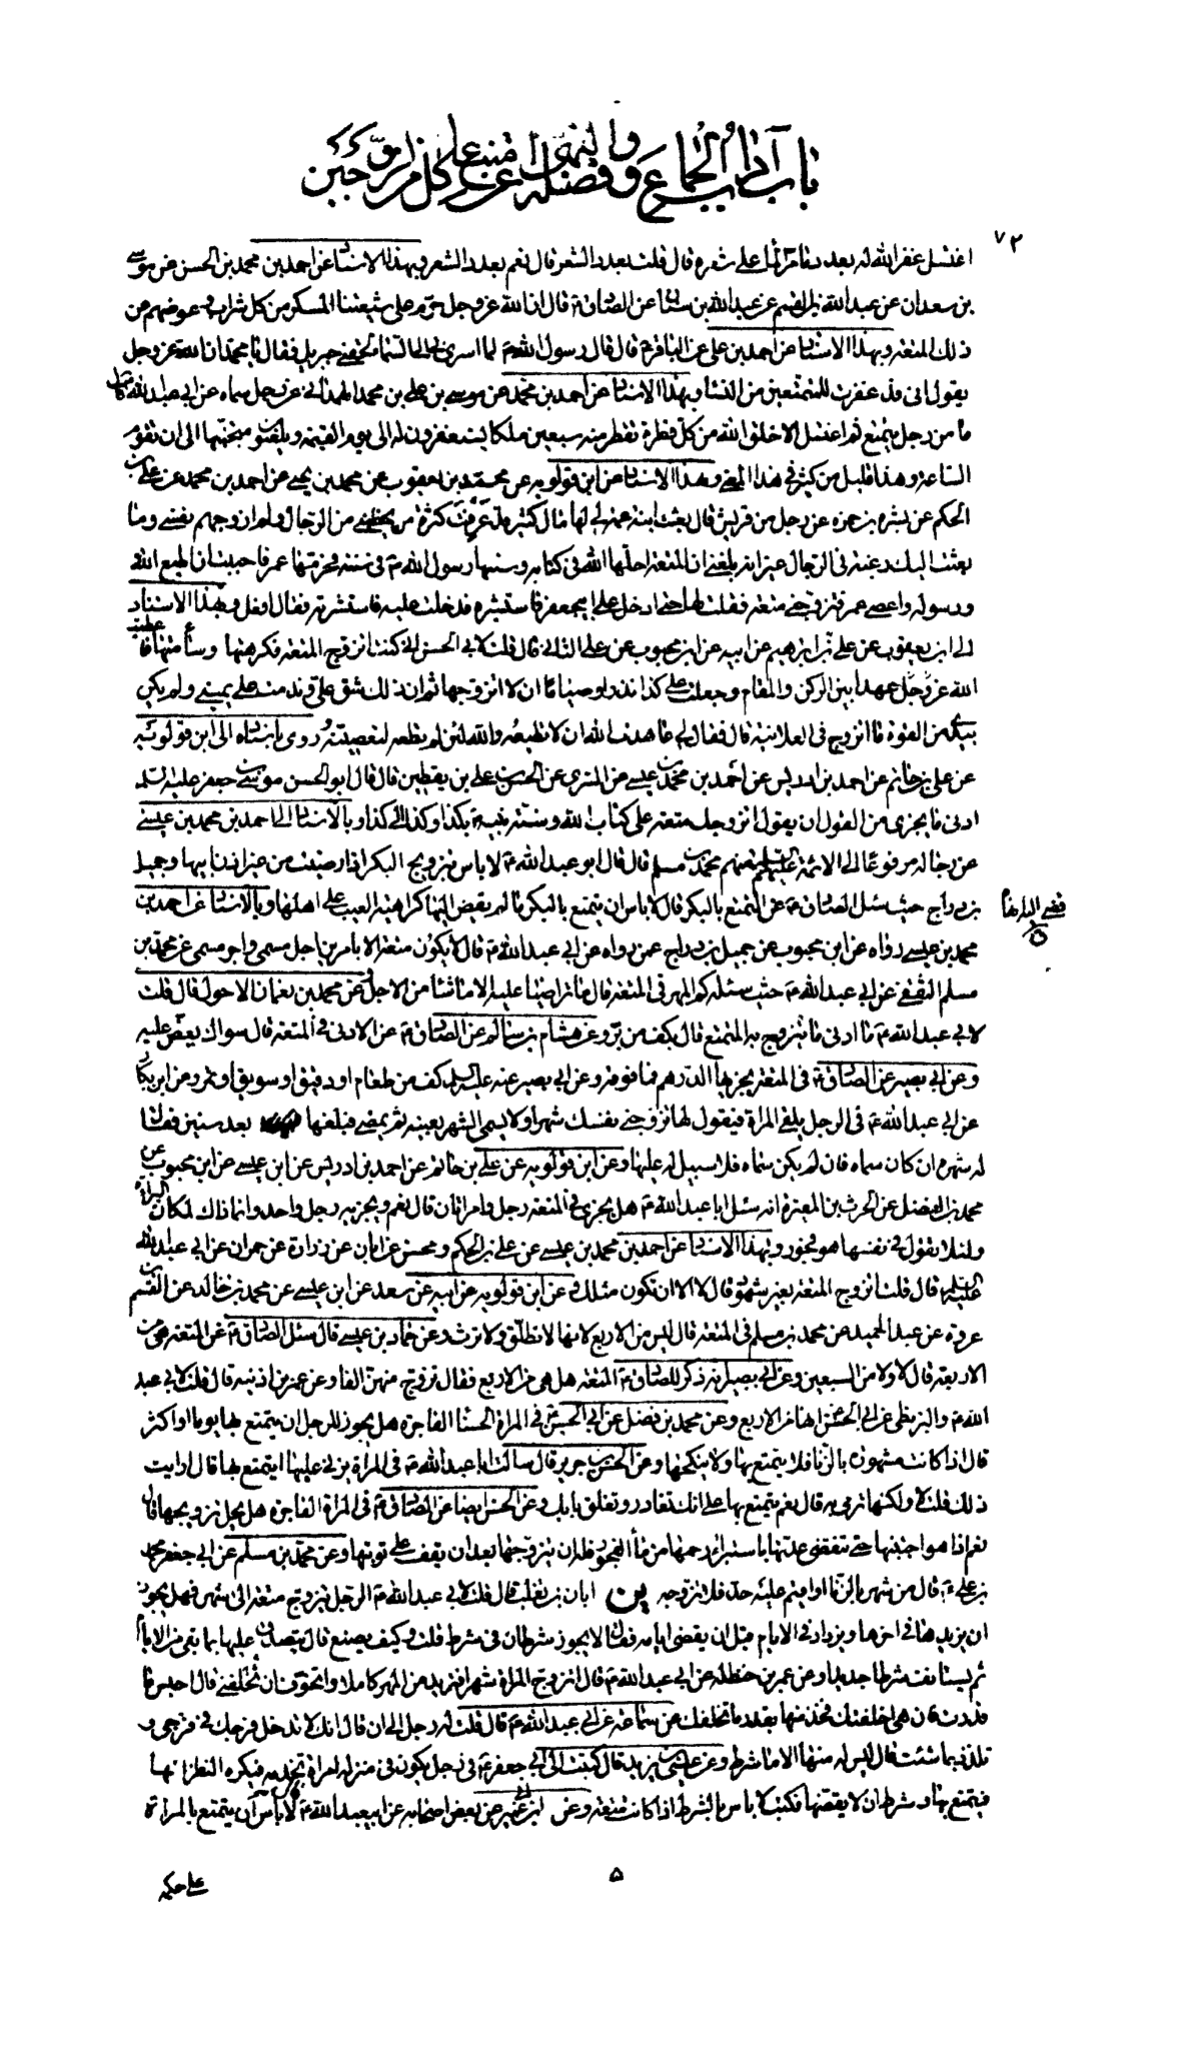 باب آداب الجماع وفضله والنهى عن امتناع كل من الزوجين
٧٢
اغتسل غفر الله له بعدد ما مر الماء على شعره قال قلت بعدد الشعر قال نعم بعدد الشعر وبهذا الاسناد عن احمد بن محمد بن الحسن عن موسى
بن سعدان عن عبد الله بن القسم عن عبد الله بن سنان عن الصادق ع قال ان الله عز وجل حرم على شيعتنا المسكر من كل شراب وعوضهم من
ذلك المتعة وبهذا الاسناد عن احمد بن على عن الباقر ع قال قال رسول الله ص لما اسرى بى الى السماء لحقنى جبريل فقال يا محمد ان الله عز وجل
يقول انى قد غفرت للمتمتعين من النساء وبهذا الاسناد عن احمد بن محمد عن موسى بن على بن محمد الهمدانى عن رجل سماه عن ابى عبد الله ع قال
ما من رجل يتمتع ثم اغتسل الا خلق الله من كل قطرة تقطر منه سبعين ملكا يستغفرون له الى يوم القيمة ويلعنون متجنبها الى ان تقوم
الساعة وهذا قليل من كثير فى هذا المعنى وبهذا الاسناد عن ابن قولويه عن محمد بن يعقوب عن محمد بن يحيى عن احمد بن محمد عن على بن
الحكم عن بشر بن حمزه عن رجل من قريش قال بعثت ابنة عمة لى لها مال كثير قد عرفت كثرة من يخطبنى من الرجال ولم ازوجهم نفسى وما
بعثت اليك رغبة فى الرجال غير انه بلغنى ان المتعة احلها الله فى كتابه وسنها رسول الله ص فى سنته فحرمها عمر فاحببت ان اطيع الله
ورسوله واعصى عمر فتزوجنى متعة فقلت لها حتى ادخل على ابى جعفر فاستشيره فدخلت عليه فاستشرته فقال افعل وبهذا الاسناد
الى ابن يعقوب عن على بن ابرهيم عن ابيه عن ابن محبوب عن على السائى قال قلت لابى الحسن انى كنت اتزوج المتعة فكرهتها وتشأمت بها فاعطيت
الله عز وجل عهدا بين الركن والمقام وجعلت على كذا نذرا وصياما ان لا اتزوجها ثم ان ذلك شق على وندمت على يمينى ولم يكن
بيدى من القوة ما اتزوج فى العلانية قال فقال لى عاهدت الله ان لا تطيعه والله لئن لم تطعه لتعصينه وروى باسناده الى ابن قولويه
عن على بن حاتم عن احمد بن ادريس عن احمد بن محمد بن عيسى عن عن الحسن بن على بن يقطين قال قال ابو الحسن موسى بن جعفر عليه السلم
ادنى ما يجزى من القول ان يقول اتزوجك متعة على كتاب الله وسنة نبيه بكذا وكذا الى كذا وبالاسناد الى احمد بن محمد بن عيسى
عن رجاله مرفوعا الى الائمة عليهم السلم منهم محمد بن مسلم قال قال ابو عبد الله ع لا باس بتزويج البكر اذا رضيت من غير اذن ابيها وجميل
بن دراج حيث سئل الصادق ع عن التمتع بالبكر قال لا باس ان يتمتع بالبكر ما لم يفض اليها كراهية العيب على اهلها وبالاسناد عن احمد بن
محمد بن عيسى رواه عن ابن محبوب عن جميل بن دراج عمن رواه عن ابى عبد الله ع قال لا يكون متعة الا بامرين اجل مسمى واجر مسمى عن محمد بن
مسلم الثقفى عن ابى عبد الله ع حيث سئله كم المهر فى المتعة قال ما تراضيا عليه الى ما شاءا من الاجل وعن محمد بن نعمان الاحول قال قلت
لابى عبد الله ع ما ادنى ما يتزوج به المتمتع قال بكف من بر وعن هشام بن سالم عن الصادق ع عن الادنى فى المتعة قال سواك يعض عليه
وعن ابى بصير عن الصادق ع فى المتعة يجزيها الدرهم فما فوقه وعن ابى بصير عنه عليه السلم كف من طعام او دقيق او سويق او تمر وعن ابن بكير
عن ابى عبد الله ع فى الرجل يلقى المراة فيقول لها زوجنى نفسك شهرا ولا يسمى الشهر بعينه ثم يمضى فيلقاها بعد سنين فقال
له شهره ان كان سماه فان لم يكن سماه فلا سبيل له عليها وعن ابن قولويه عن على بن حاتم عن احمد بن ادريس عن ابن عيسى عن ابن محبوب عن
محمد بن الفضل عن الحرث بن المغيرة انه سئل ابا عبد الله ع هل يجزى فى المتعة رجل وامراتان قال نعم ويجزيه رجل واحد وانما ذلك لمكان البراءة
ولئلا تقول فى نفسها هو فجور وبهذا الاسناد عن احمد بن محمد بن عيسى عن على بن الحكم ومحسن عن ابان عن زرارة عن حمران عن ابى عبد الله
عليه السلم قال قلت اتزوج المتعة بغير شهود قال لا الا ان تكون مثلك وعن ابن قولويه عن ابيه عن سعد عن ابن عيسى عن محمد بن خالد عن القسم بن
عروة عن عبد الحميد عن محمد بن مسلم فى المتعة قال ليس من الاربع لانها لا تطلق ولا ترث وعن حماد بن عيسى قال سئل الصادق ع عن المتعة هى من
الاربعة قال لا ولا من السبعين وعن ابى بصير انه ذكر للصادق ع المتعة هل هى من الاربع فقال تزوج منهن الفا وعن عمر بن اذينه قال قلت لابى عبد
الله ع والبزنطى عن ابى الحسن انها من الاربع وعن محمد بن فضل عن ابى الحسن ع فى المراة الحسنا الفاجرة هل يجوز للرجل ان يتمتع بها يوما او اكثر
قال اذا كانت مشهورة بالزنا فلا يتمتع بها ولا ينكحها وعن الحسن بن جرير قال سالت ابا عبد الله ع فى المراة يزنى عليها ايتمتع بها قال ارايت
ذلك قلت لا ولكنها ترمى به قال نعم يتمتع بها على انك تغادر وتغلق بابك وعن الحسن ايضا عن الصادق ع فى المراة الفاجرة هل يحل تزويجها قال
نعم اذا هو اجتنبها حتى تنقضى عدتها باستبراء رحمها من ماء الفجور فله ان يتزوجها بعد ان يقف على توبتها وعن محمد بن مسلم عن ابى جعفر محمد
بن على ع قال من شهر بالزنا او اقيم عليه حد فلا تزوجه ابان بن تغلب قال قلت لابى عبد الله ع الرجل يتزوج متعة الى شهر فهل يجوز
ان يزيدها فى اجرها ويزداد فى الايام قبل ان يقضى ايامه فقال لا يجوز شرطان فى شرط قلت وكيف يصنع قال يتصدق عليها بما بقى من الايام
ثم يستانف شرطا جديدا وعن عمر بن حنظله عن ابى عبد الله ع قال اتزوج المراة شهرا فتريد من المهر كاملا واتخوف ان تخلفنى قال احبس ما
قدرت فان هى اخلفتك فخذ منها بقدر ما تخلفك عن سماعة عن ابى عبد الله ع قال قلت له رجل الى ان قال انك لا تدخل فرجك فى فرجى و
تلذذ بما شئت قال ليس له منها الا ما شرط وعن عيسى بن يزيد قال كتبت الى ابى جعفر ع فى رجل يكون فى منزله امراة تخدمه فيكره النظر اليها
فيتمتع بها وشرط ان لا يفتضها فكتب لا باس بالشرط اذا كانت متعة وعن ابن ابى عمير عن بعض اصحابه عن ابى عبد الله ع قال لا باس ان يتمتع بالمراة
على حكمه
٥